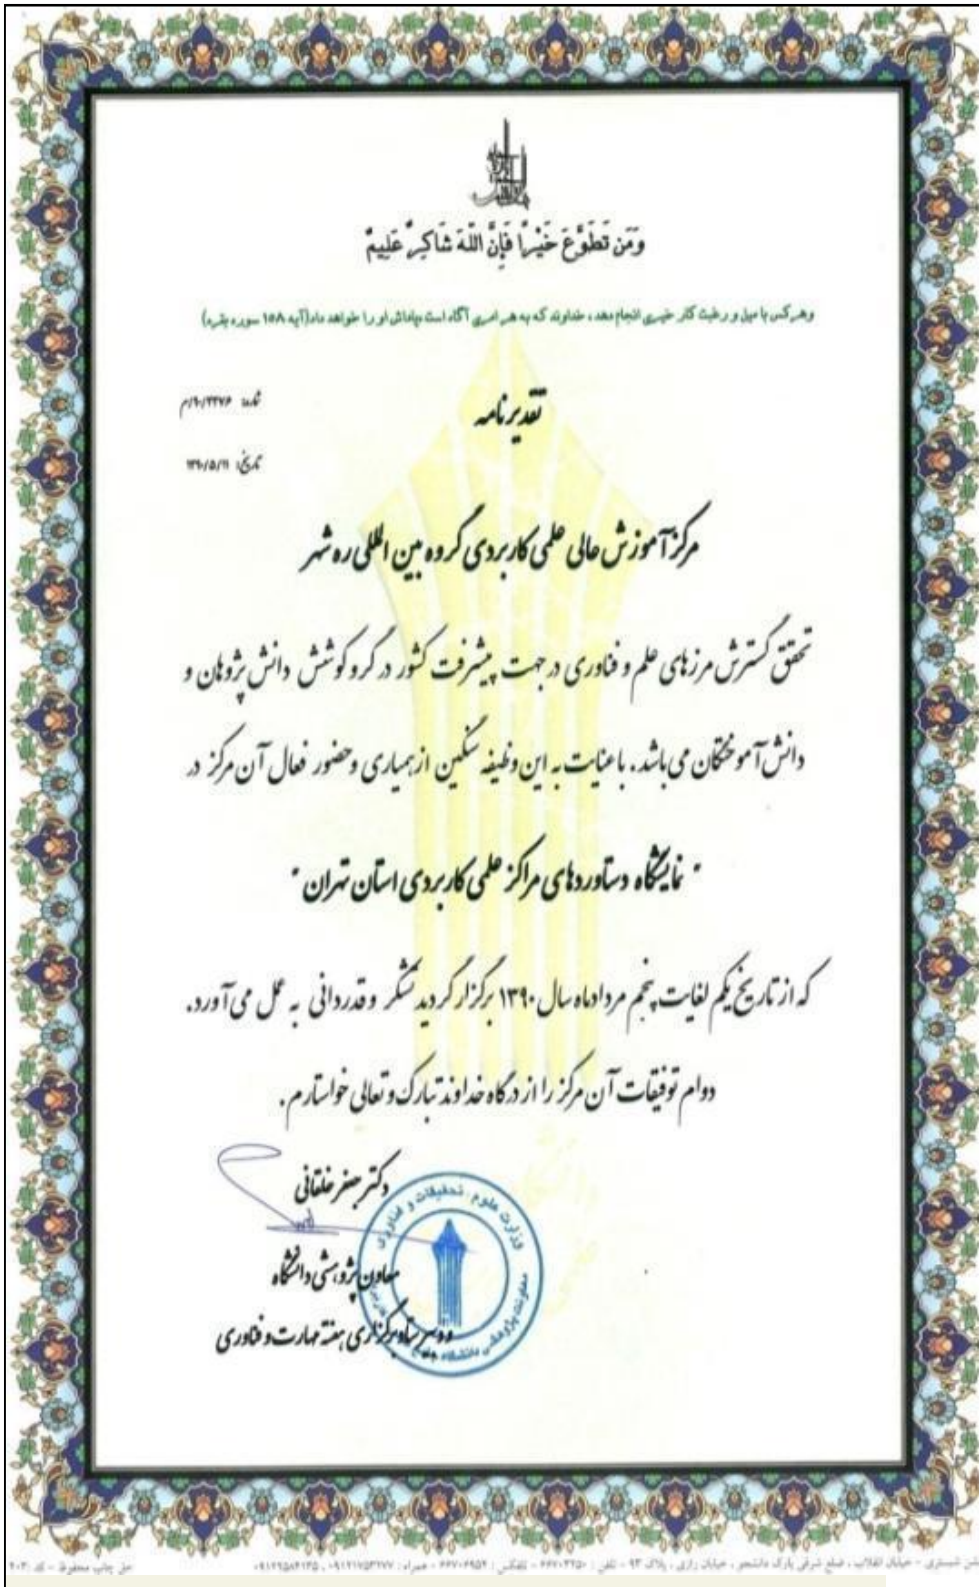 وَمَن تَطَوَّعَ خَيْرًا فَإِنَّ اللّهَ شَاكِرٌ عَلِيمٌ
وهرکس با میل و رغبت کار خیری انجام دهد، خداوند که به هر امری آگاه است پاداش او را خواهد داد(آیه ۱۵۸ سوره بقره)
تقدیرنامه
شماره: ۹۰/۳۳۷۶/م
تاریخ: ۱۳۹۰/۵/۱۱
مرکز آموزش عالی علمی کاربردی گروه بین المللی ره شهر
تحقق گسترش مرزهای علم و فناوری در جهت پیشرفت کشور در گرو کوشش دانش پژوهان و
دانش آموختگان می باشد. با عنایت به این وظیفه سنگین از همیاری و حضور فعال آن مرکز در
" نمایشگاه دستاوردهای مراکز علمی کاربردی استان تهران "
که از تاریخ یکم لغایت پنجم مردادماه سال ۱۳۹۰ برگزار گردید تشکر و قدردانی به عمل می آورد.
دوام توفیقات آن مرکز را از درگاه خداوند تبارک و تعالی خواستارم.
دکتر جعفر خلقانی
معاون پژوهشی دانشگاه
و دبیر ستاد برگزاری هفته مهارت و فناوری
وزارت علوم، تحقیقات و فناوری
معاونت پژوهشی دانشگاه جامع
خیابان انقلاب، ضلع شرقی پارک دانشجو، خیابان رازی، پلاک ۹۳ - تلفن: ۶۶۷۰۳۲۵۰ - تلفکس: ۶۶۷۰۶۹۵۲ - همراه:
حق چاپ محفوظ - کد